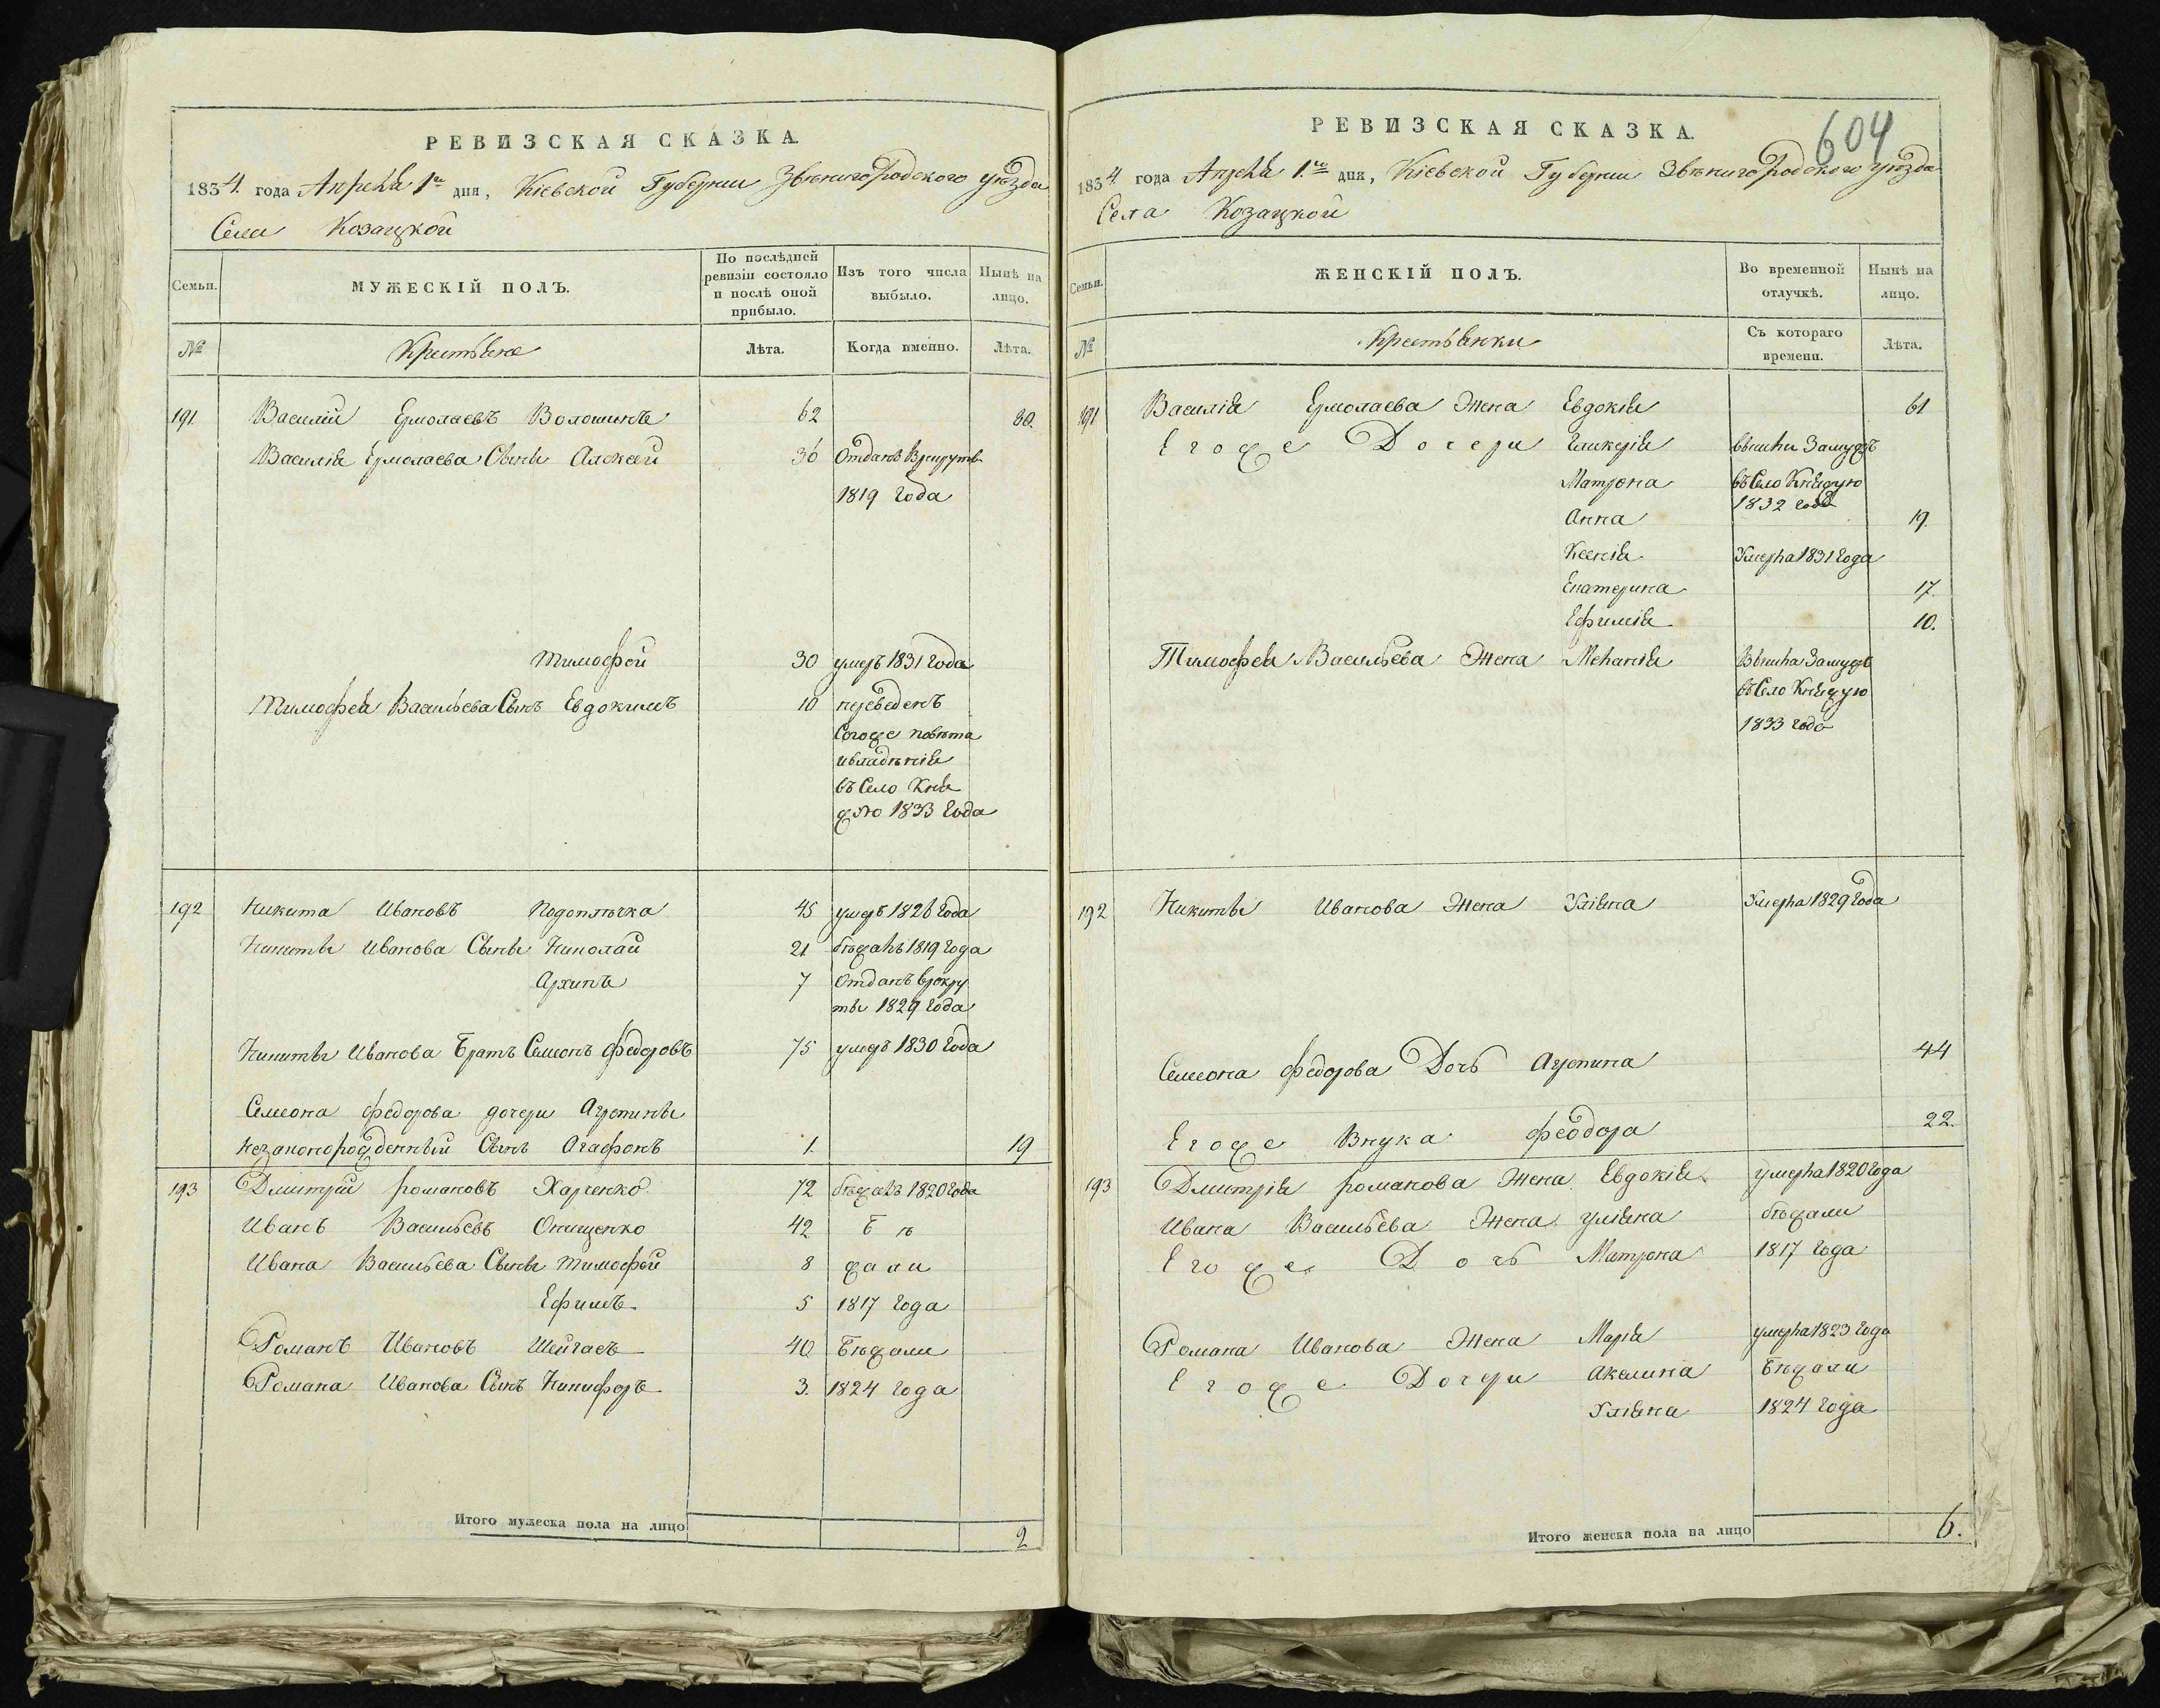 РЕВИЗСКАЯ СКАЗКА.
1834. года Апреля 1го дня, Кіевской Губерніи Звѣнигородского уѣзда
Села Козацкой
Семьи.
МУЖЕСКІЙ ПОЛЪ.
По послѣдней ревизіи состояло и послѣ оной прибыло.
Изъ того числа выбыло.
Нынѣ на лицо.
№
Крестьяне
Лѣта.
Когда именно.
Лѣта.
191 Василий Ермолаевъ Волошинъ 62
Василія Ермолаева Сыны Алексей 36 Отданъ Врекруты
1819 Года
Тимофей 30 умеръ 1831 года
Тимофея Васильева Сынъ Евдокимъ 10 переведенъ
Сегоже повѣта
ивладѣнія
въ Село Кня
жую 1833 Года
192 Никита Ивановъ Подоплѣчка 45 умеръ 1826 Года
Никиты Иванова Сыны Николай 21 бѣжалъ 1819 Года
Архипъ 7 Отданъ врекру
ты 1829 Года
Никиты Иванова Братъ Семенъ Федоровъ 75 умеръ 1830 Года
Семена Федорова дочери Агрепины
Незаконорожденный Сынъ Агафонъ 1. 19
193 Дмитрий Романовъ Харченко 72 бѣжалъ 1820 Года
Иванъ Васильевъ Онищенко 42 Бѣ
Ивана Васильева Сыны Тимофей 8 жали
Ефимъ 5 1817 Года
Романъ Ивановъ Шейгасъ 40 Бѣжали
Романа Иванова Сынъ Никифоръ 3. 1824 Года
Итого мужеска пола на лицо 2
604
РЕВИЗСКАЯ СКАЗКА.
1834. года Апреля 1.го дня, Кіевской Губерніи Звѣнигородского уѣзда
Села Козацкой
Семьи.
ЖЕНСКІЙ ПОЛЪ.
Во временной отлучкѣ.
Нынѣ на лицо.
№
Крестьянки
Съ котораго времени.
Лѣта.
191 Василія Ермолаева Жена Евдокія 61
Егоже Дочери Гликерія вышли Замужъ
Матрона въ Село Княжую
1832 года
Анна 19.
Ксенія Умерла 1831 Года
Екатерина 17.
Ефимія 10.
Тимофея Васильева Жена Меланія Вышла Замужъ
въ Село Княжую
1833 года
192 Никиты Иванова Жена Уліяна Умерла 1829 Года
Семена Федорова Дочь Агрепина 44
Егоже Внука Феодора 22.
193 Дмитрія Романова Жена Евдокія умерла 1820 Года
Ивана Васильева Жена Уліяна бѣжали
Егоже Дочь Матрона 1817 Года
Романа Иванова Жена Марія умерла 1823 Года
Егоже Дочери Акилина Бѣжали
Уліяна 1824 Года
Итого женска пола на лицо 6.